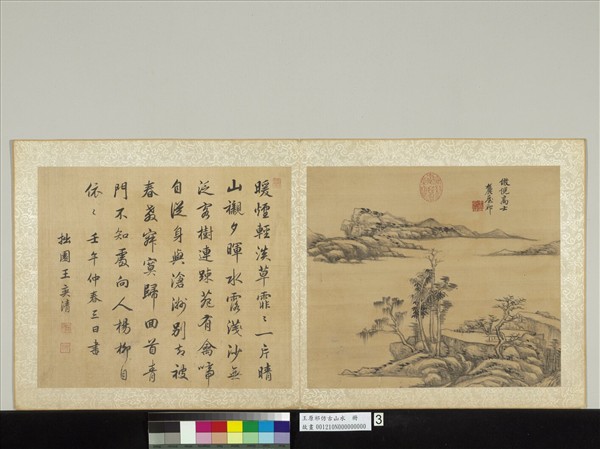 倣倪高士
麓臺祁
暖烟輕淡草霏〻一片晴
山襯夕暉水露淺沙無
泛客樹連踈苑有禽啼
自從身與滄洲別長被
春教寂寞歸回首青
門不知處向人楊柳自
依〻壬午仲春三日書
拙園王奕清
王原祁仿古山水 冊
故畫 001210N000000000
3